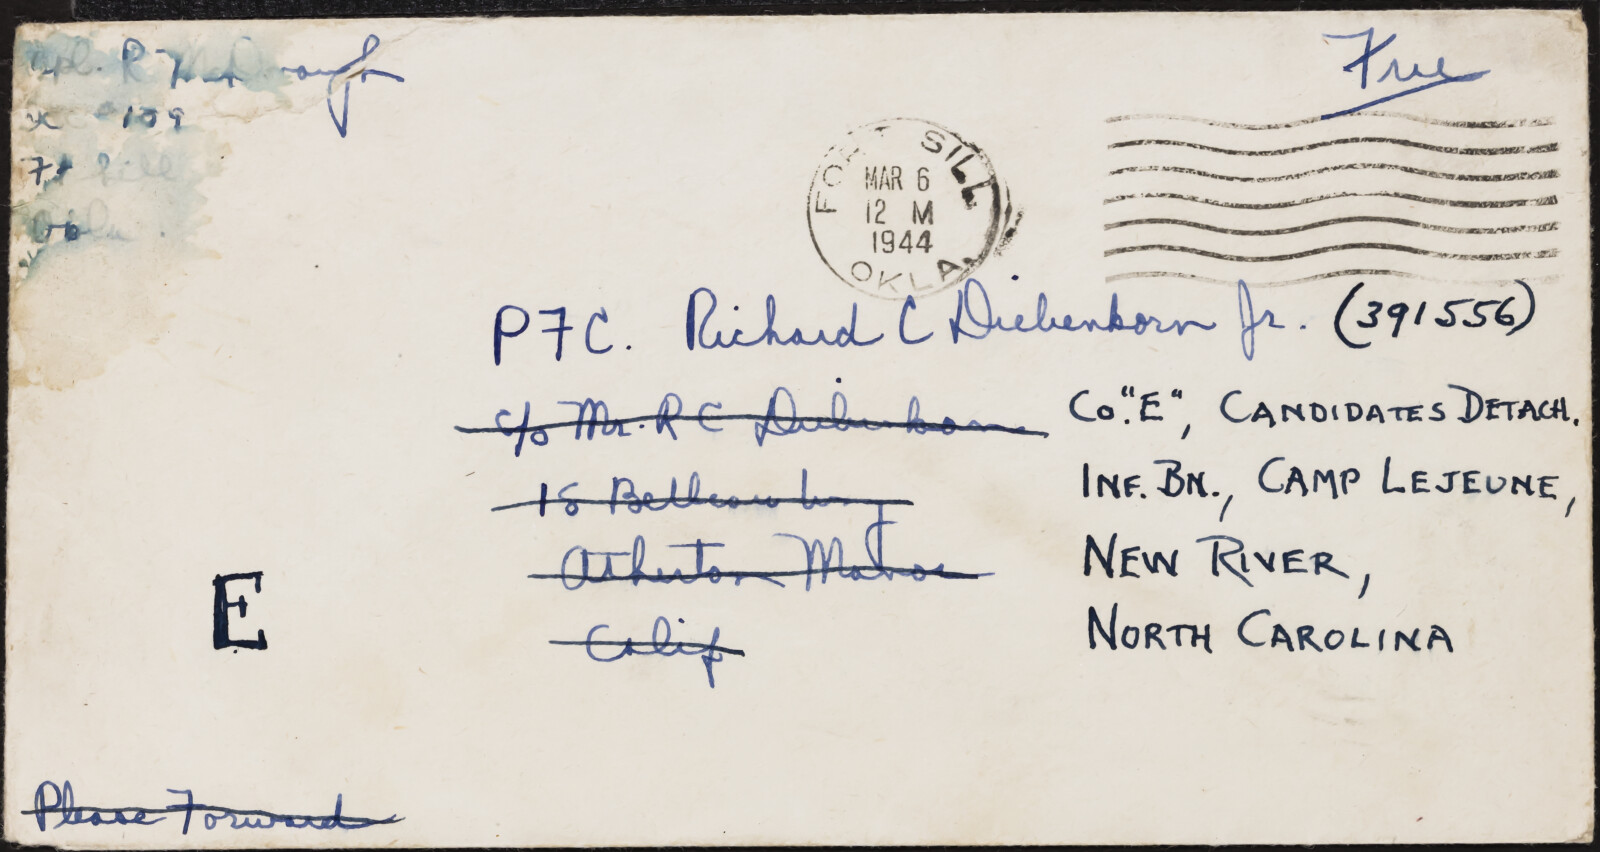 Cpl. R McDonough
#109
Ft Sill
Okla.
Free
FORT SILL
MAR 6
12 M
1944
OKLA.
PFC. Richard C Diebenkorn Jr. (391556)
c/o Mr. R C Diebenkorn
Co. "E", CANDIDATES DETACH.
15 Belleau Way
INF. BN., CAMP LEJEUNE,
Atherton Manor
NEW RIVER,
Calif
NORTH CAROLINA
E
Please Forward